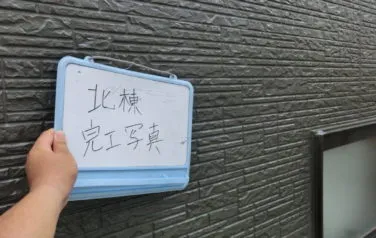 北棟
完工写真